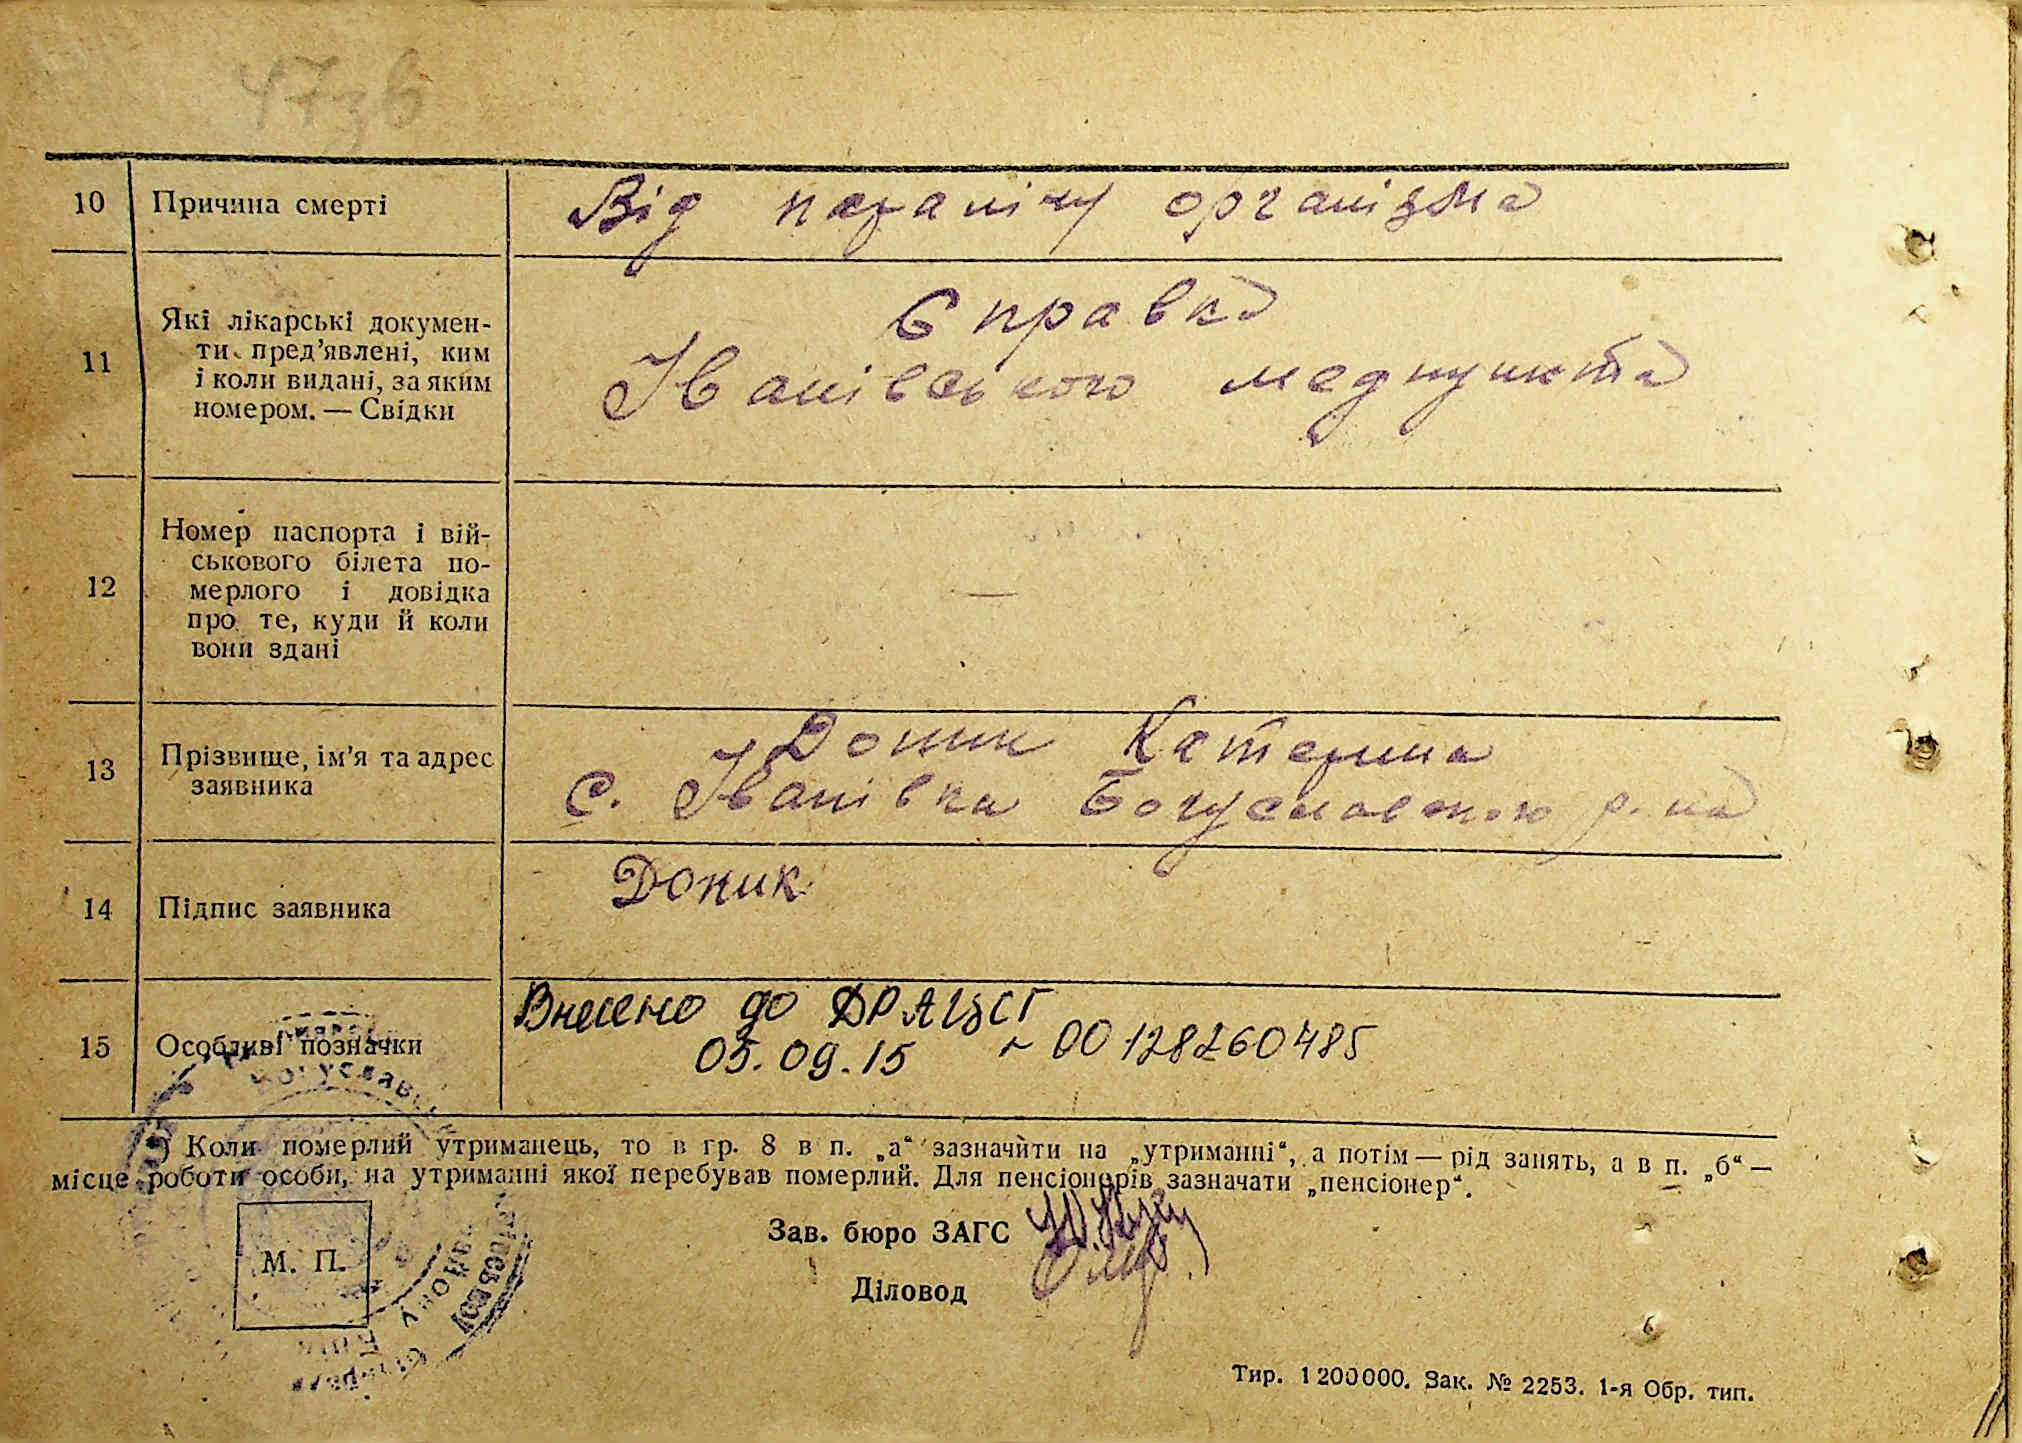 10 Причина смерті Від паралічу організма
11 Які лікарські докумен-
ти пред’явлені, ким
і коли видані, за яким
номером. — Свідки
Справка
Іванівського медпункта
12 Номер паспорта і вій-
ськового білета по-
мерлого і довідка
про те, куди й коли
вони здані
—
13 Прізвище, ім’я та адрес
заявника
Доник Катерина
с. Іванівка Богуславського р-на
14 Підпис заявника Доник
15 Особливі позначки
Внесено до ДРАЦСГ
05.09.15 00128260485
*) Коли померлий утриманець, то в гр. 8 в п. „а“ зазначити на „утриманні“, а потім — рід занять, а в п. „б“ —
місце роботи особи, на утриманні якої перебував померлий. Для пенсіонерів зазначати „пенсіонер“.
Зав. бюро ЗАГС
М. П.
Діловод
Тир. 1200000. Зак. № 2253. 1-я Обр. тип.